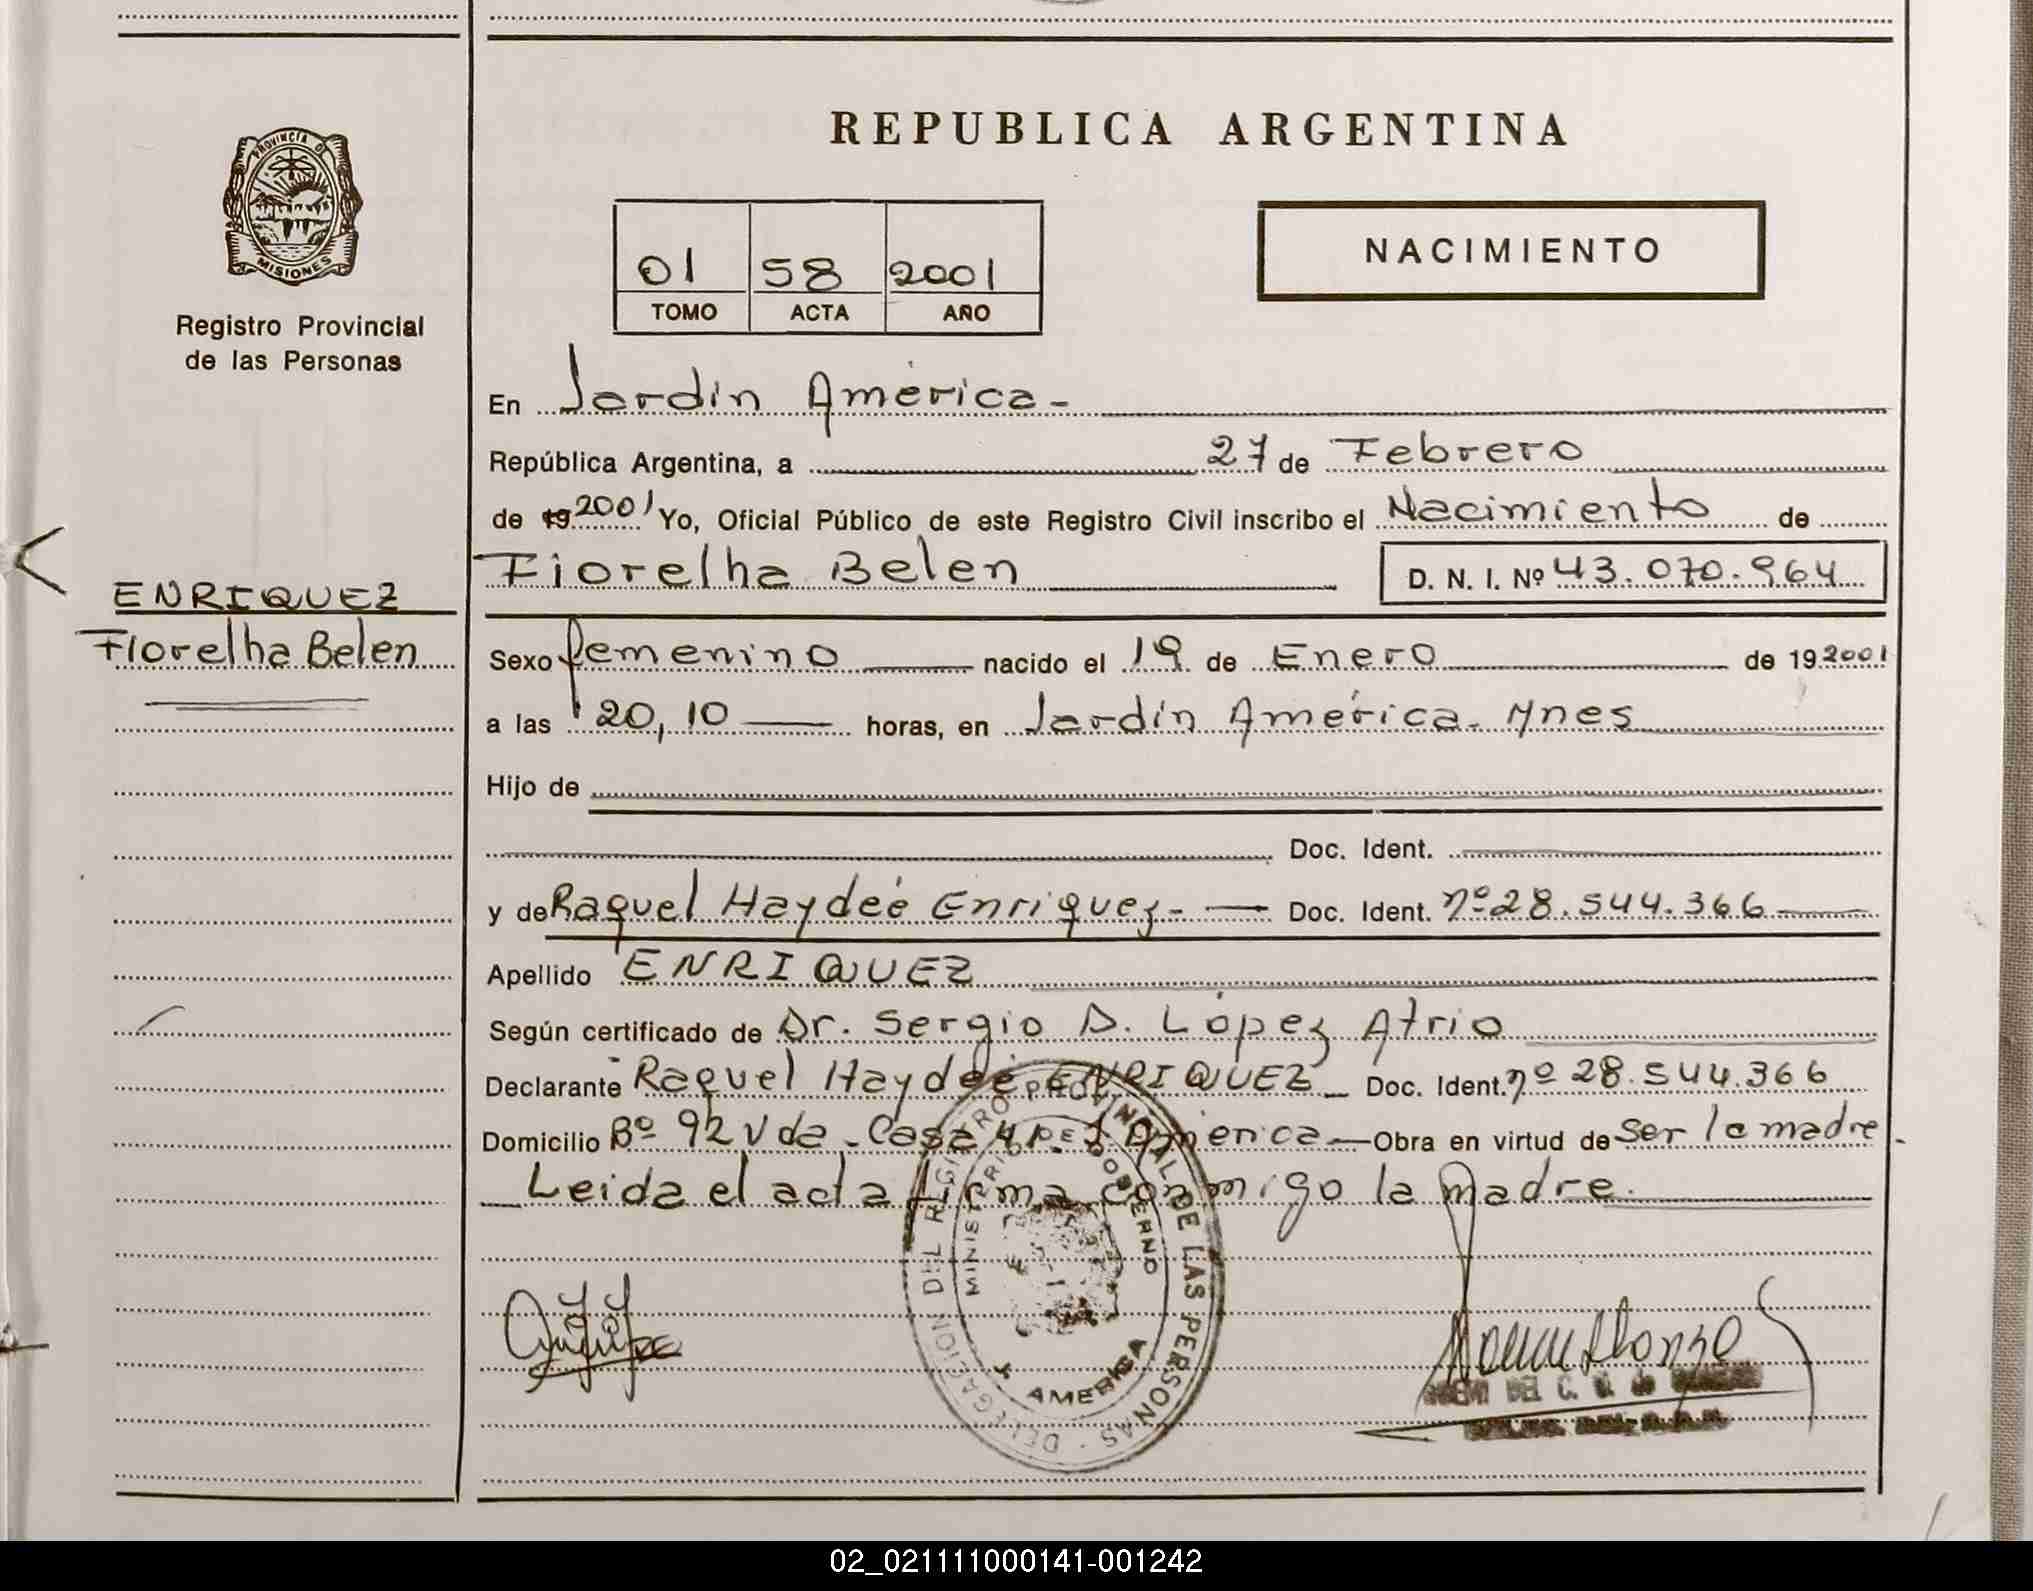 REPUBLICA ARGENTINA
PROVINCIA D
MISIONES
Registro Provincial
de las Personas
01 58 2001
TOMO ACTA AÑO
NACIMIENTO
En Jardín América-
República Argentina, a 27 de Febrero
de 19 2001 Yo, Oficial Público de este Registro Civil inscribo el Nacimiento de
Fiorelha Belen D. N. I. Nº 43.070.964
ENRIQUEZ
Fiorelha Belen
Sexo femenino nacido el 19 de Enero de 19 2001
a las 20,10 horas, en Jardín América. Mnes
Hijo de
Doc. Ident.
y de Raquel Haydeé Enriquez- Doc. Ident. nº 28.544.366
Apellido ENRIQUEZ
Según certificado de Dr. Sergio D. López Atrio
Declarante Raquel Haydeé ENRIQUEZ Doc. Ident. nº 28.544.366
Domicilio Bº 92 Vda. Casa J América Obra en virtud de Ser la madre
Leida el acta firma conmigo la madre.
DELEGACION DEL REGISTRO PROVINCIAL DE LAS PERSONAS
MINISTERIO DE GOBERNO
J. AMERICA
02_021111000141-001242